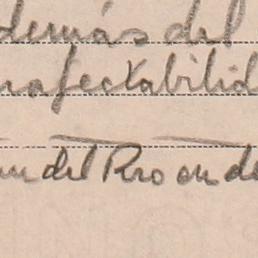 demás del
nafectabilid
un del Rio en de